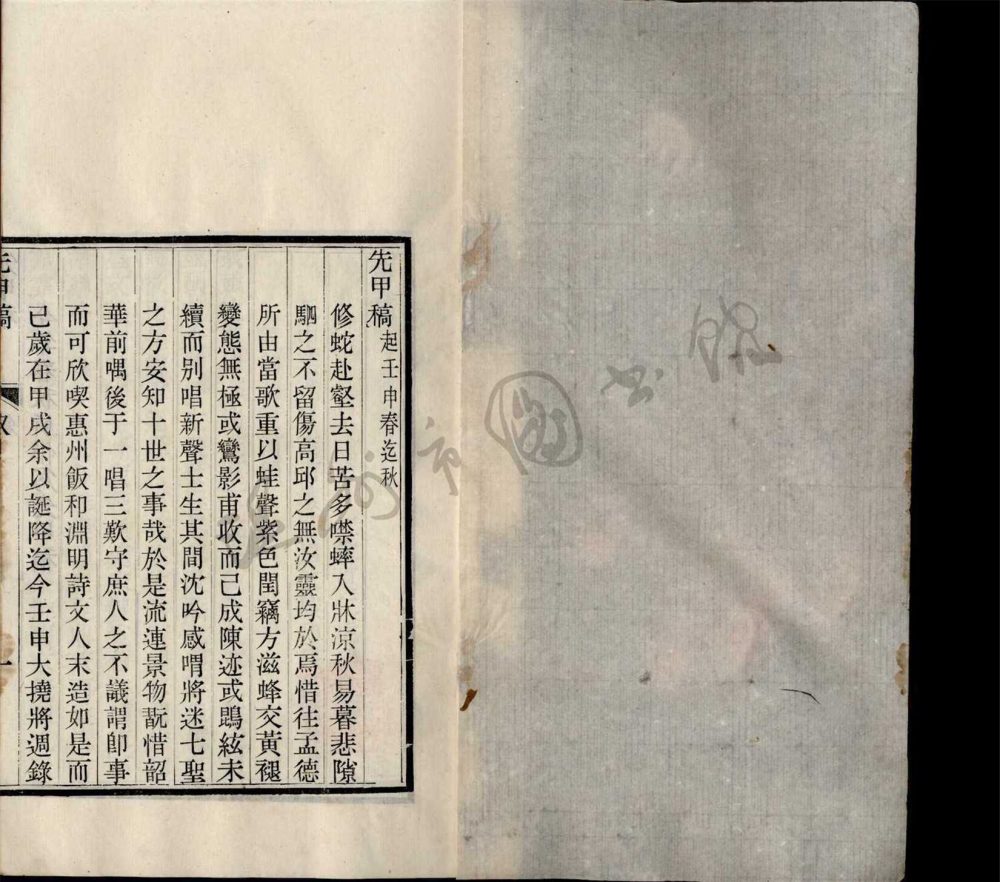 先甲稿起壬申春迄秋
修蛇赴壑去日苦多噤蟀入牀涼秋易暮悲隙
駟之不留傷高邱之無汝靈均於焉惜往孟德
所由當歌重以蛙聲紫色閏竊方滋蜂交黃褪
變態無極或鸞影甫收而已成陳迹或鵾絃未
續而别唱新聲士生其間沈吟感喟將迷七聖
之方安知十世之事哉於是流連景物翫惜韶
華前喁後于一唱三歎守庶人之不議謂卽事
而可欣喫惠州飯和淵明詩文人末造如是而
已歲在甲戌余以誕降迄今壬申大撓將週錄
先甲稿
一
市圖書館